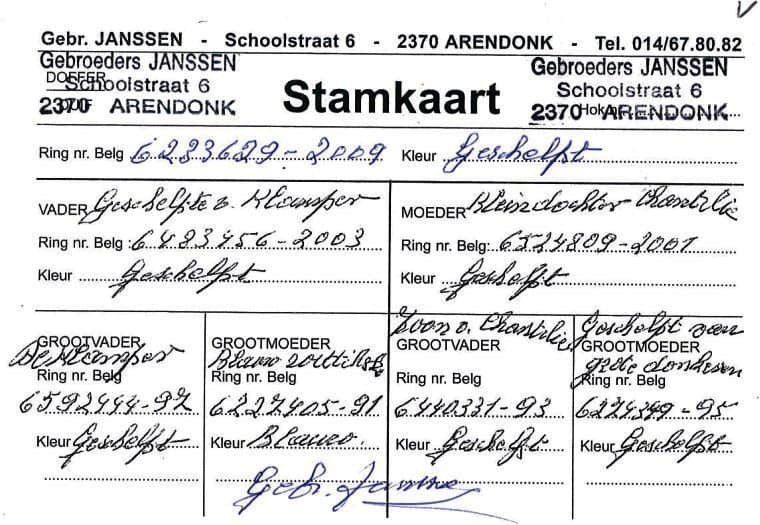 Gebr. JANSSEN - Schoolstraat 6 - 2370 ARENDONK - Tel. 014/67.80.82
Gebroeders JANSSEN
DOFFER
Schoolstraat 6
2370 ARENDONK
Stamkaart
Gebroeders JANSSEN
Schoolstraat 6
2370 ARENDONK
Ring nr. Belg 6233629-2009 Kleur Geschelpt
VADER Geschelpte v. Klamper
Ring nr. Belg: 6483456-2003
Kleur Geschelpt
MOEDER Kleindochter Chantilie
Ring nr. Belg: 6524809-2001
Kleur Geschelpt
GROOTVADER
De Klamper
Ring nr. Belg
6592444-97
Kleur Geschelpt
GROOTMOEDER
Blauw
Ring nr. Belg
6227405-91
Kleur Blauw.
Zoon v. Chantilie
GROOTVADER
Ring nr. Belg
6440331-93
Kleur Geschelpt
Geschelpt van
GROOTMOEDER
donkeren
Ring nr. Belg
6274349-95
Kleur Geschelpt
Gebr. Janssen